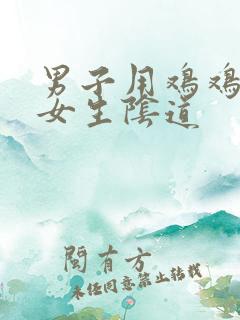 男子用鸡鸡
女生陰道
閩有方
未经同意禁止转载